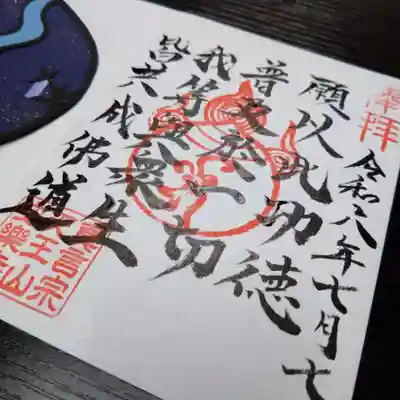 奉拝
令和八年七月七
願以此功徳
普及於一切
我等與衆生
皆共成佛道
真言宗
天王山
樂